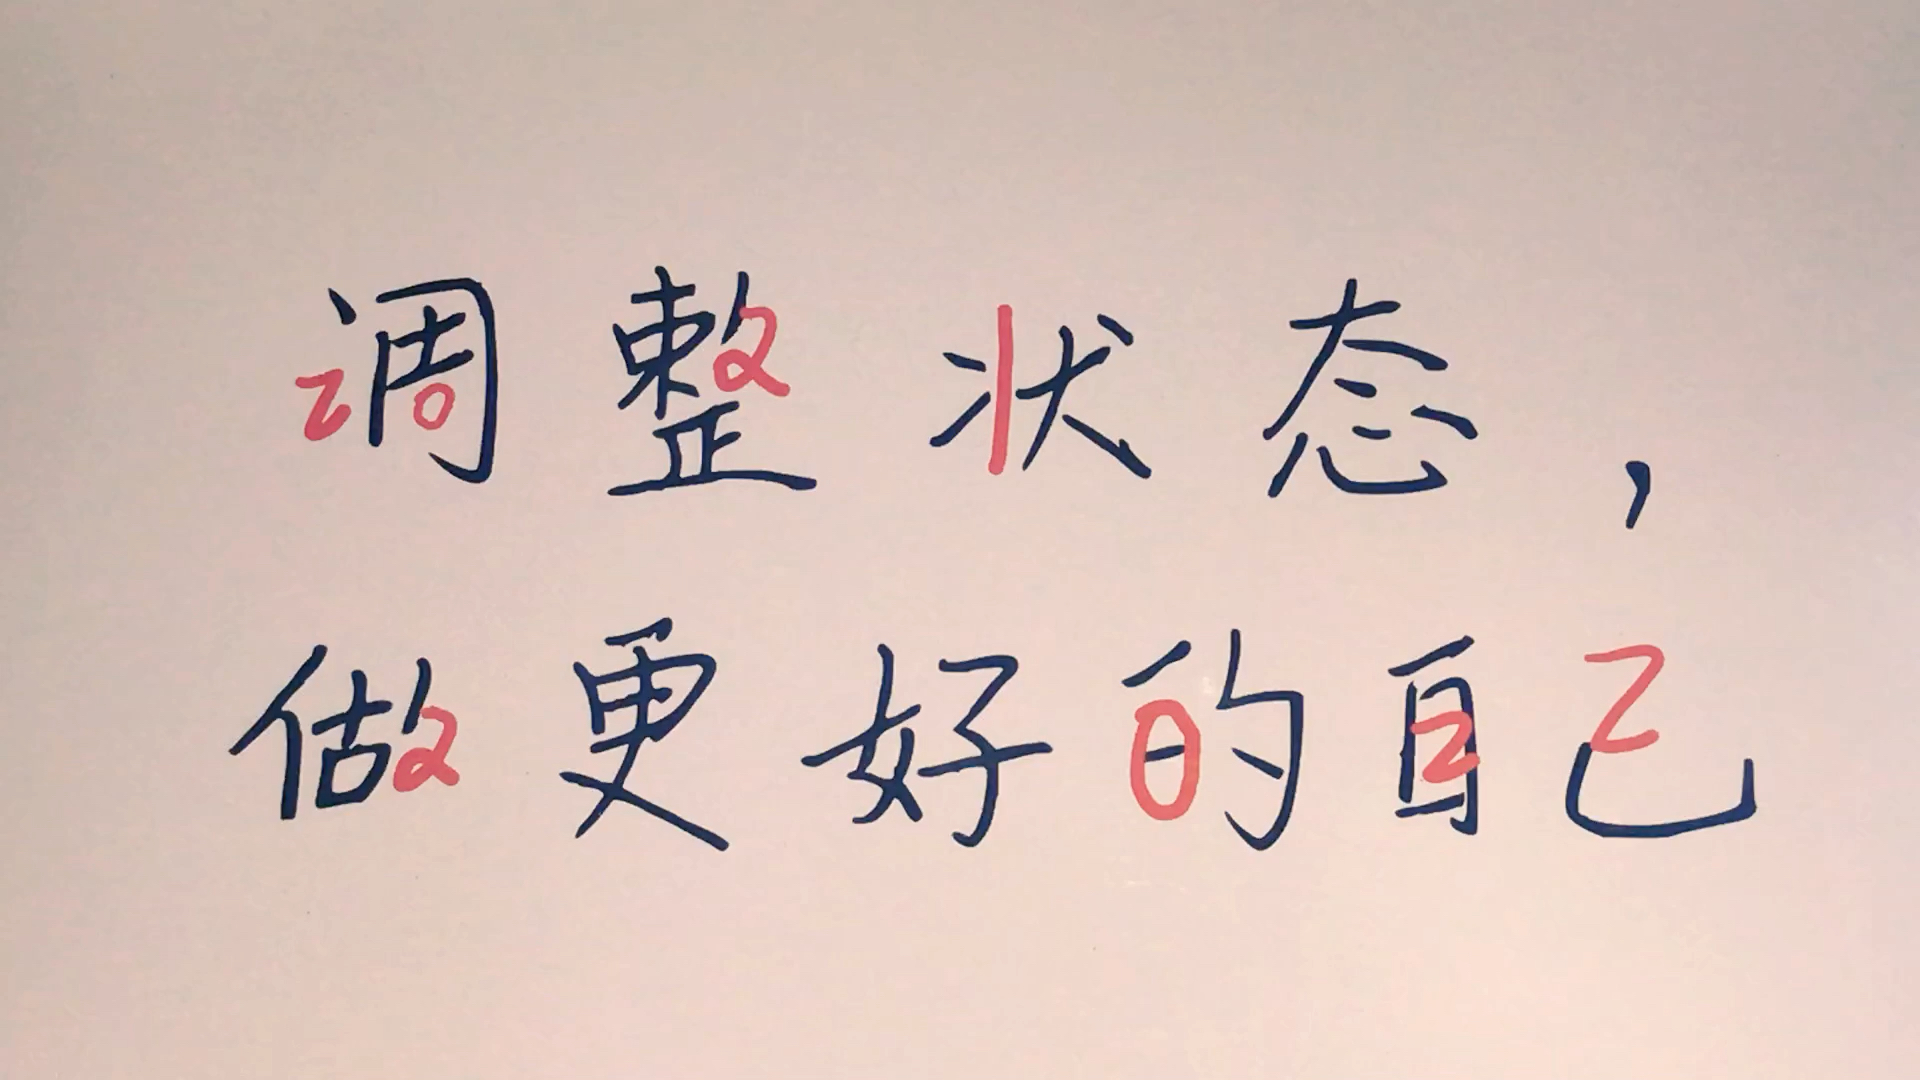 调整状态，
做更好的自己